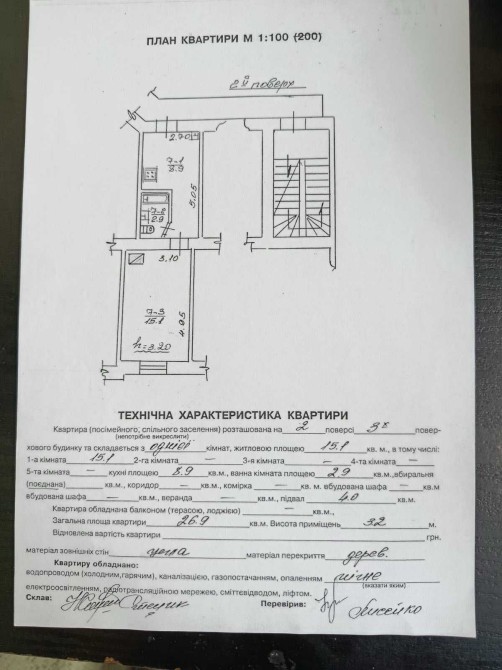 ПЛАН КВАРТИРИ М 1:100 (200)
2й поверх
2.70
7-1
8.9
5.05
7-2
2.9
3.10
7-3
15.1
4.95
h=3.20
ТЕХНІЧНА ХАРАКТЕРИСТИКА КВАРТИРИ
Квартира (посімейного, спільного заселення) розташована на 2 поверсі 3х повер-
(непотрібне викреслити)
хового будинку та складається з однієї кімнат, житловою площею 15.1 кв. м., в тому числі:
1-а кімната 15.1 2-га кімната — 3-я кімната — 4-та кімната —
5-та кімната — кухні площею 8.9 кв.м., ванна кімната площею 2.9 кв.м., вбиральня
(поєднана) — кв.м., коридор — кв.м., комірка — кв. м. вбудована шафа — кв.м
вбудована шафа — кв.м., веранда — кв.м., підвал 4.0 кв.м.
Квартира обладнана балконом (терасою, лоджією) — кв.м.,
Загальна площа квартири 26.9 кв.м. Висота приміщень 3.2 м.
Відновлена вартість квартири грн.
матеріал зовнішніх стін цегла матеріал перекриття дерев.
Квартиру обладнано:
водопроводом (холодним,гарячим), каналізацією, газопостачанням, опаленням пічне
(вказати яким)
електроосвітленням, радіотрансляційною мережею, сміттєвідводом, ліфтом.
Склав: Перевірив: